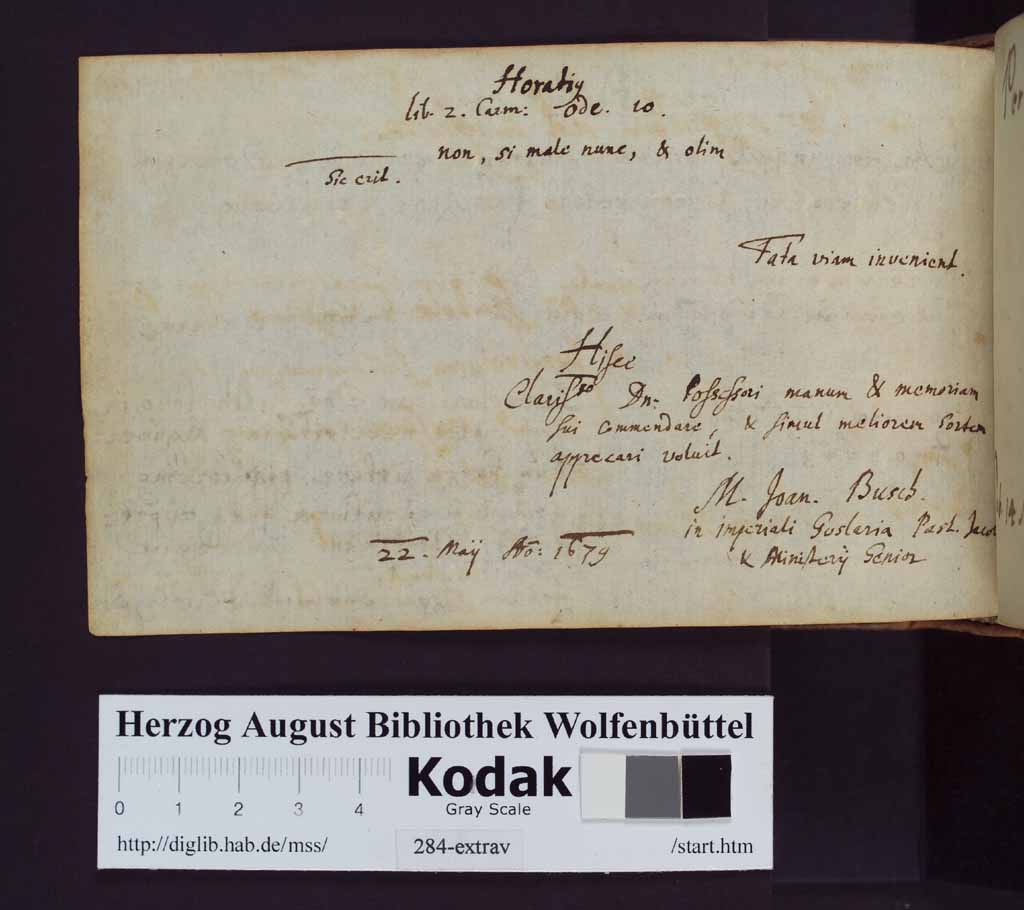 Horatiꝯ
lib. 2. Carm: Ode. 10.
non, si male nunc, & olim
sic erit.
Fata viam invenient.
Hisce
Clarisso Dn. Possessori manum & memoriam
sui commendare, & simul meliorem sortem
apprecari voluit.
M. Joan. Busch.
in imperiali Goslaria Past. Jacob
& Ministerÿ Senior
22. Maÿ Ao: 1679
Herzog August Bibliothek Wolfenbüttel
0 1 2 3 4
Kodak
Gray Scale
http://diglib.hab.de/mss/ 284-extrav /start.htm